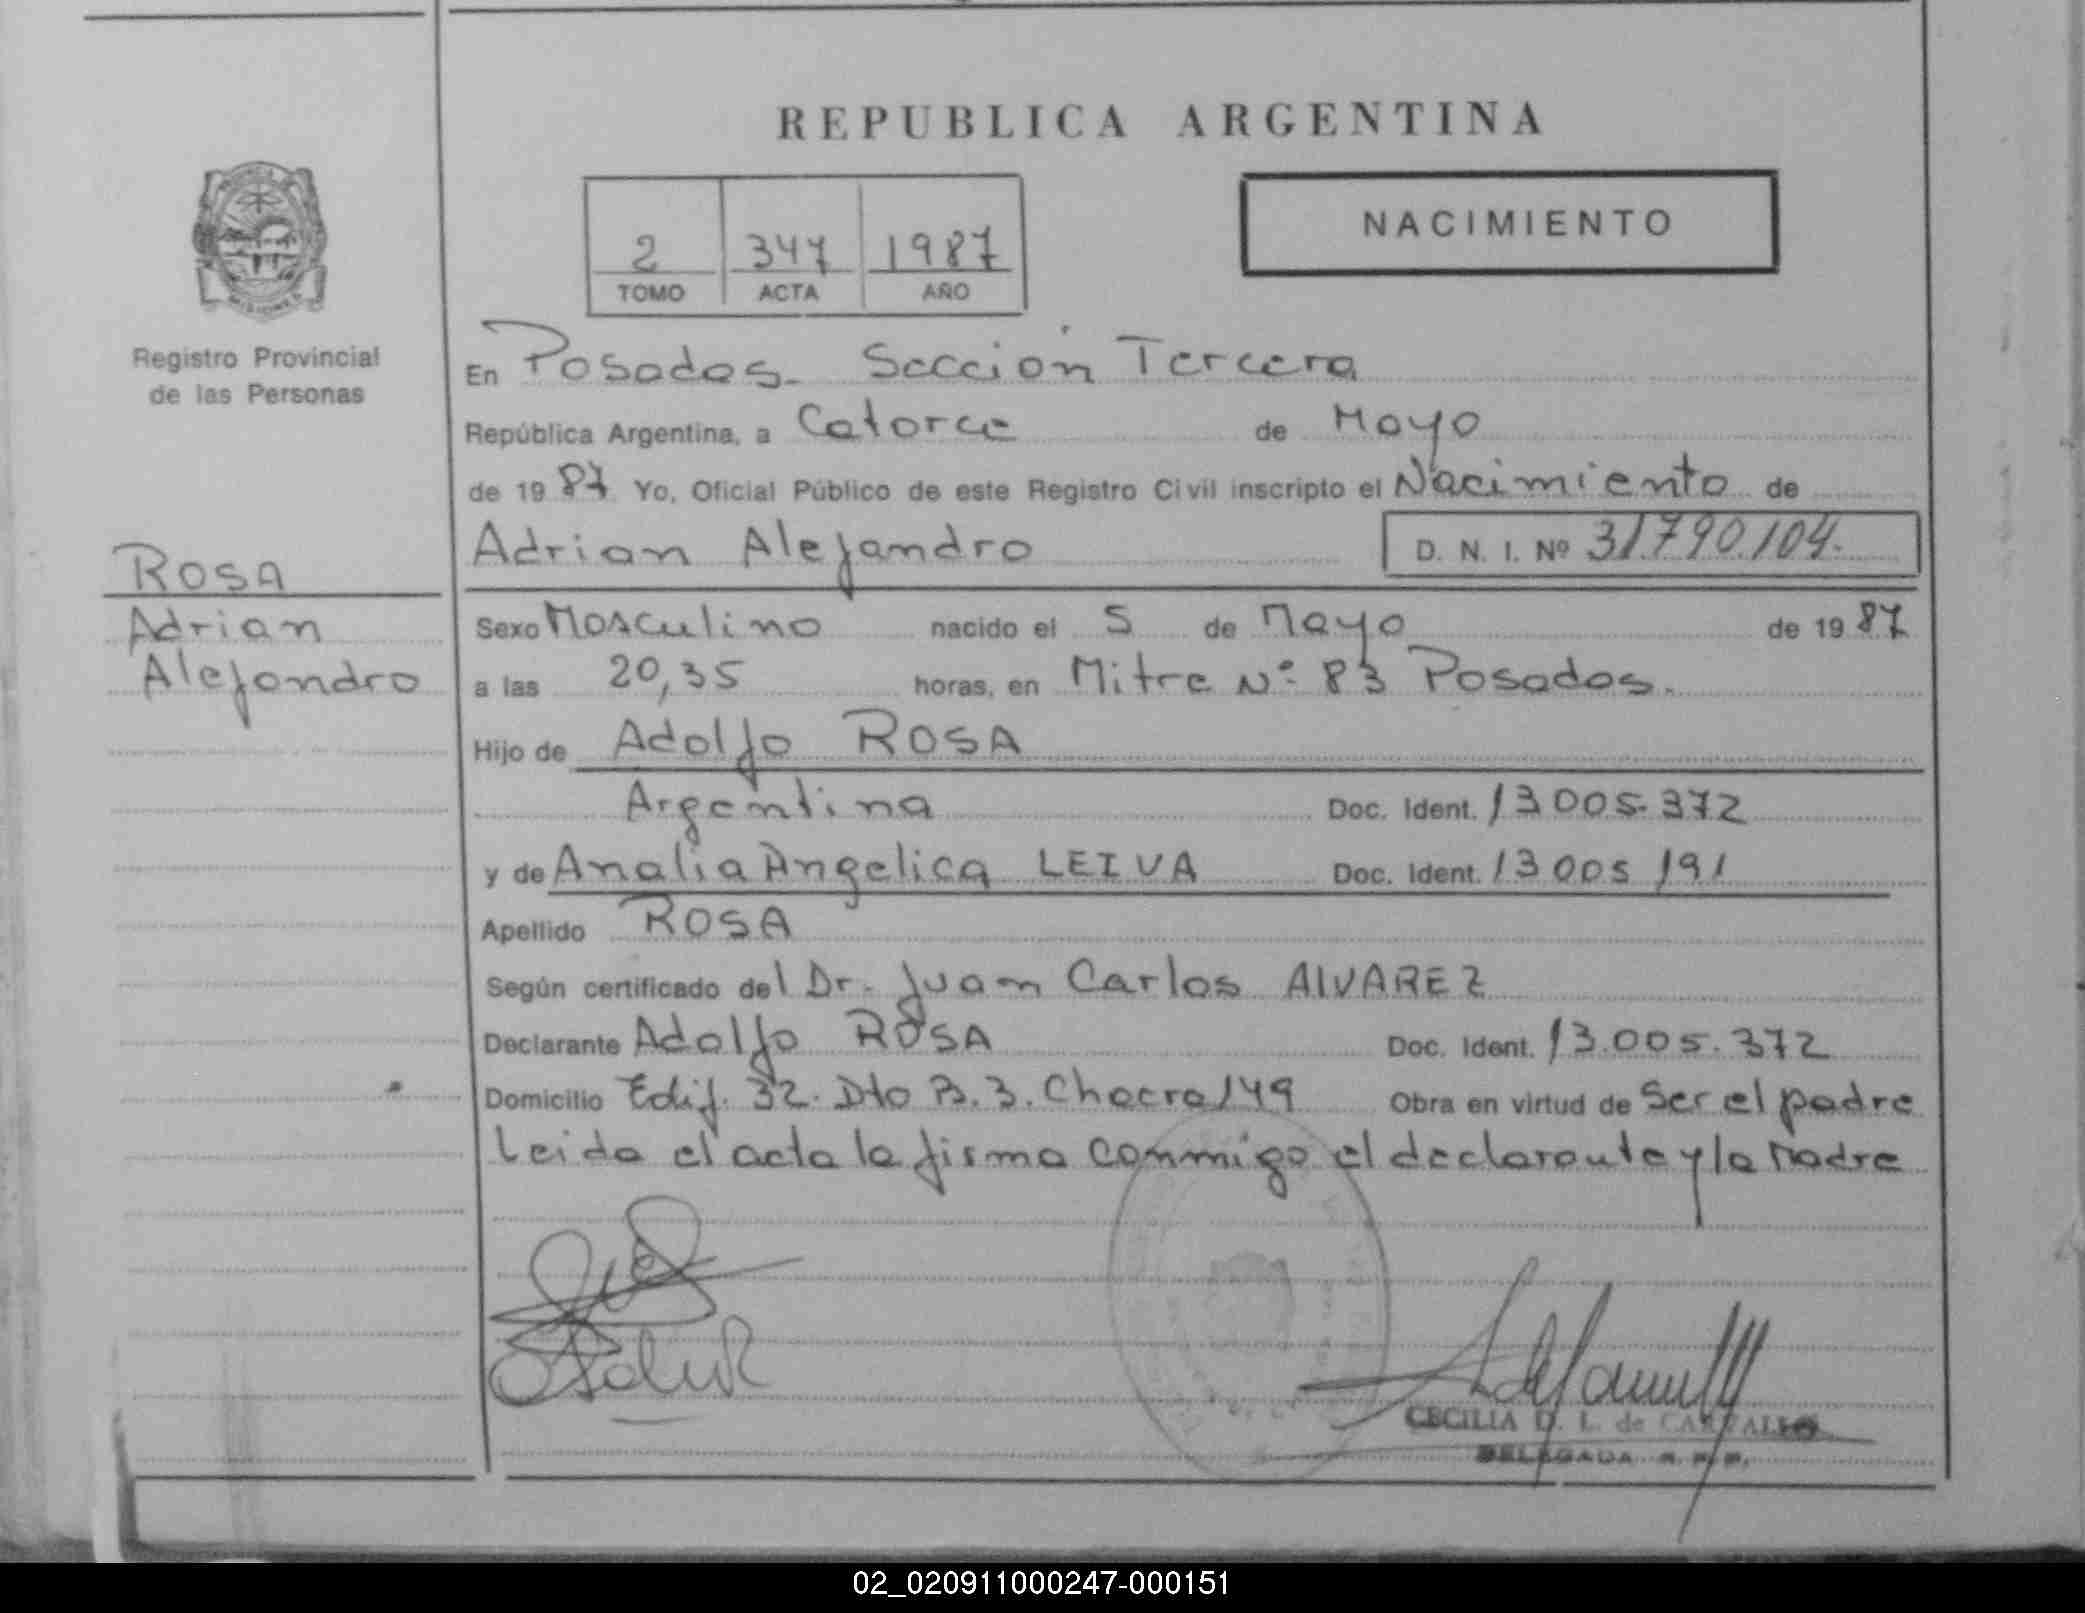 REPUBLICA ARGENTINA
NACIMIENTO
2 347 1987
TOMO ACTA AÑO
Registro Provincial
de las Personas
En Posadas. Sección Tercera
República Argentina, a Catorce de Mayo
de 19 87 Yo, Oficial Público de este Registro Civil inscripto el Nacimiento de
Adrian Alejandro D. N. I. Nº 31.790.104.
ROSA
Adrian
Alejandro
Sexo Masculino nacido el 5 de Mayo de 19 87
a las 20,35 horas, en Mitre Nº 83 Posadas.
Hijo de Adolfo ROSA
Argentina Doc. Ident. 13005.372
y de Analia Angelica LEIVA Doc. Ident. 13005191
Apellido ROSA
Según certificado del Dr. Juan Carlos ALVAREZ
Declarante Adolfo ROSA Doc. Ident. 13.005.372
Domicilio Edif. 32. Dto B.3. Chacra 149 Obra en virtud de Ser el padre
Leida el acta la firma conmigo el declarante y la Madre
CECILIA D. L. de CARVALLO
DELEGADA R. P. P.
02_020911000247-000151